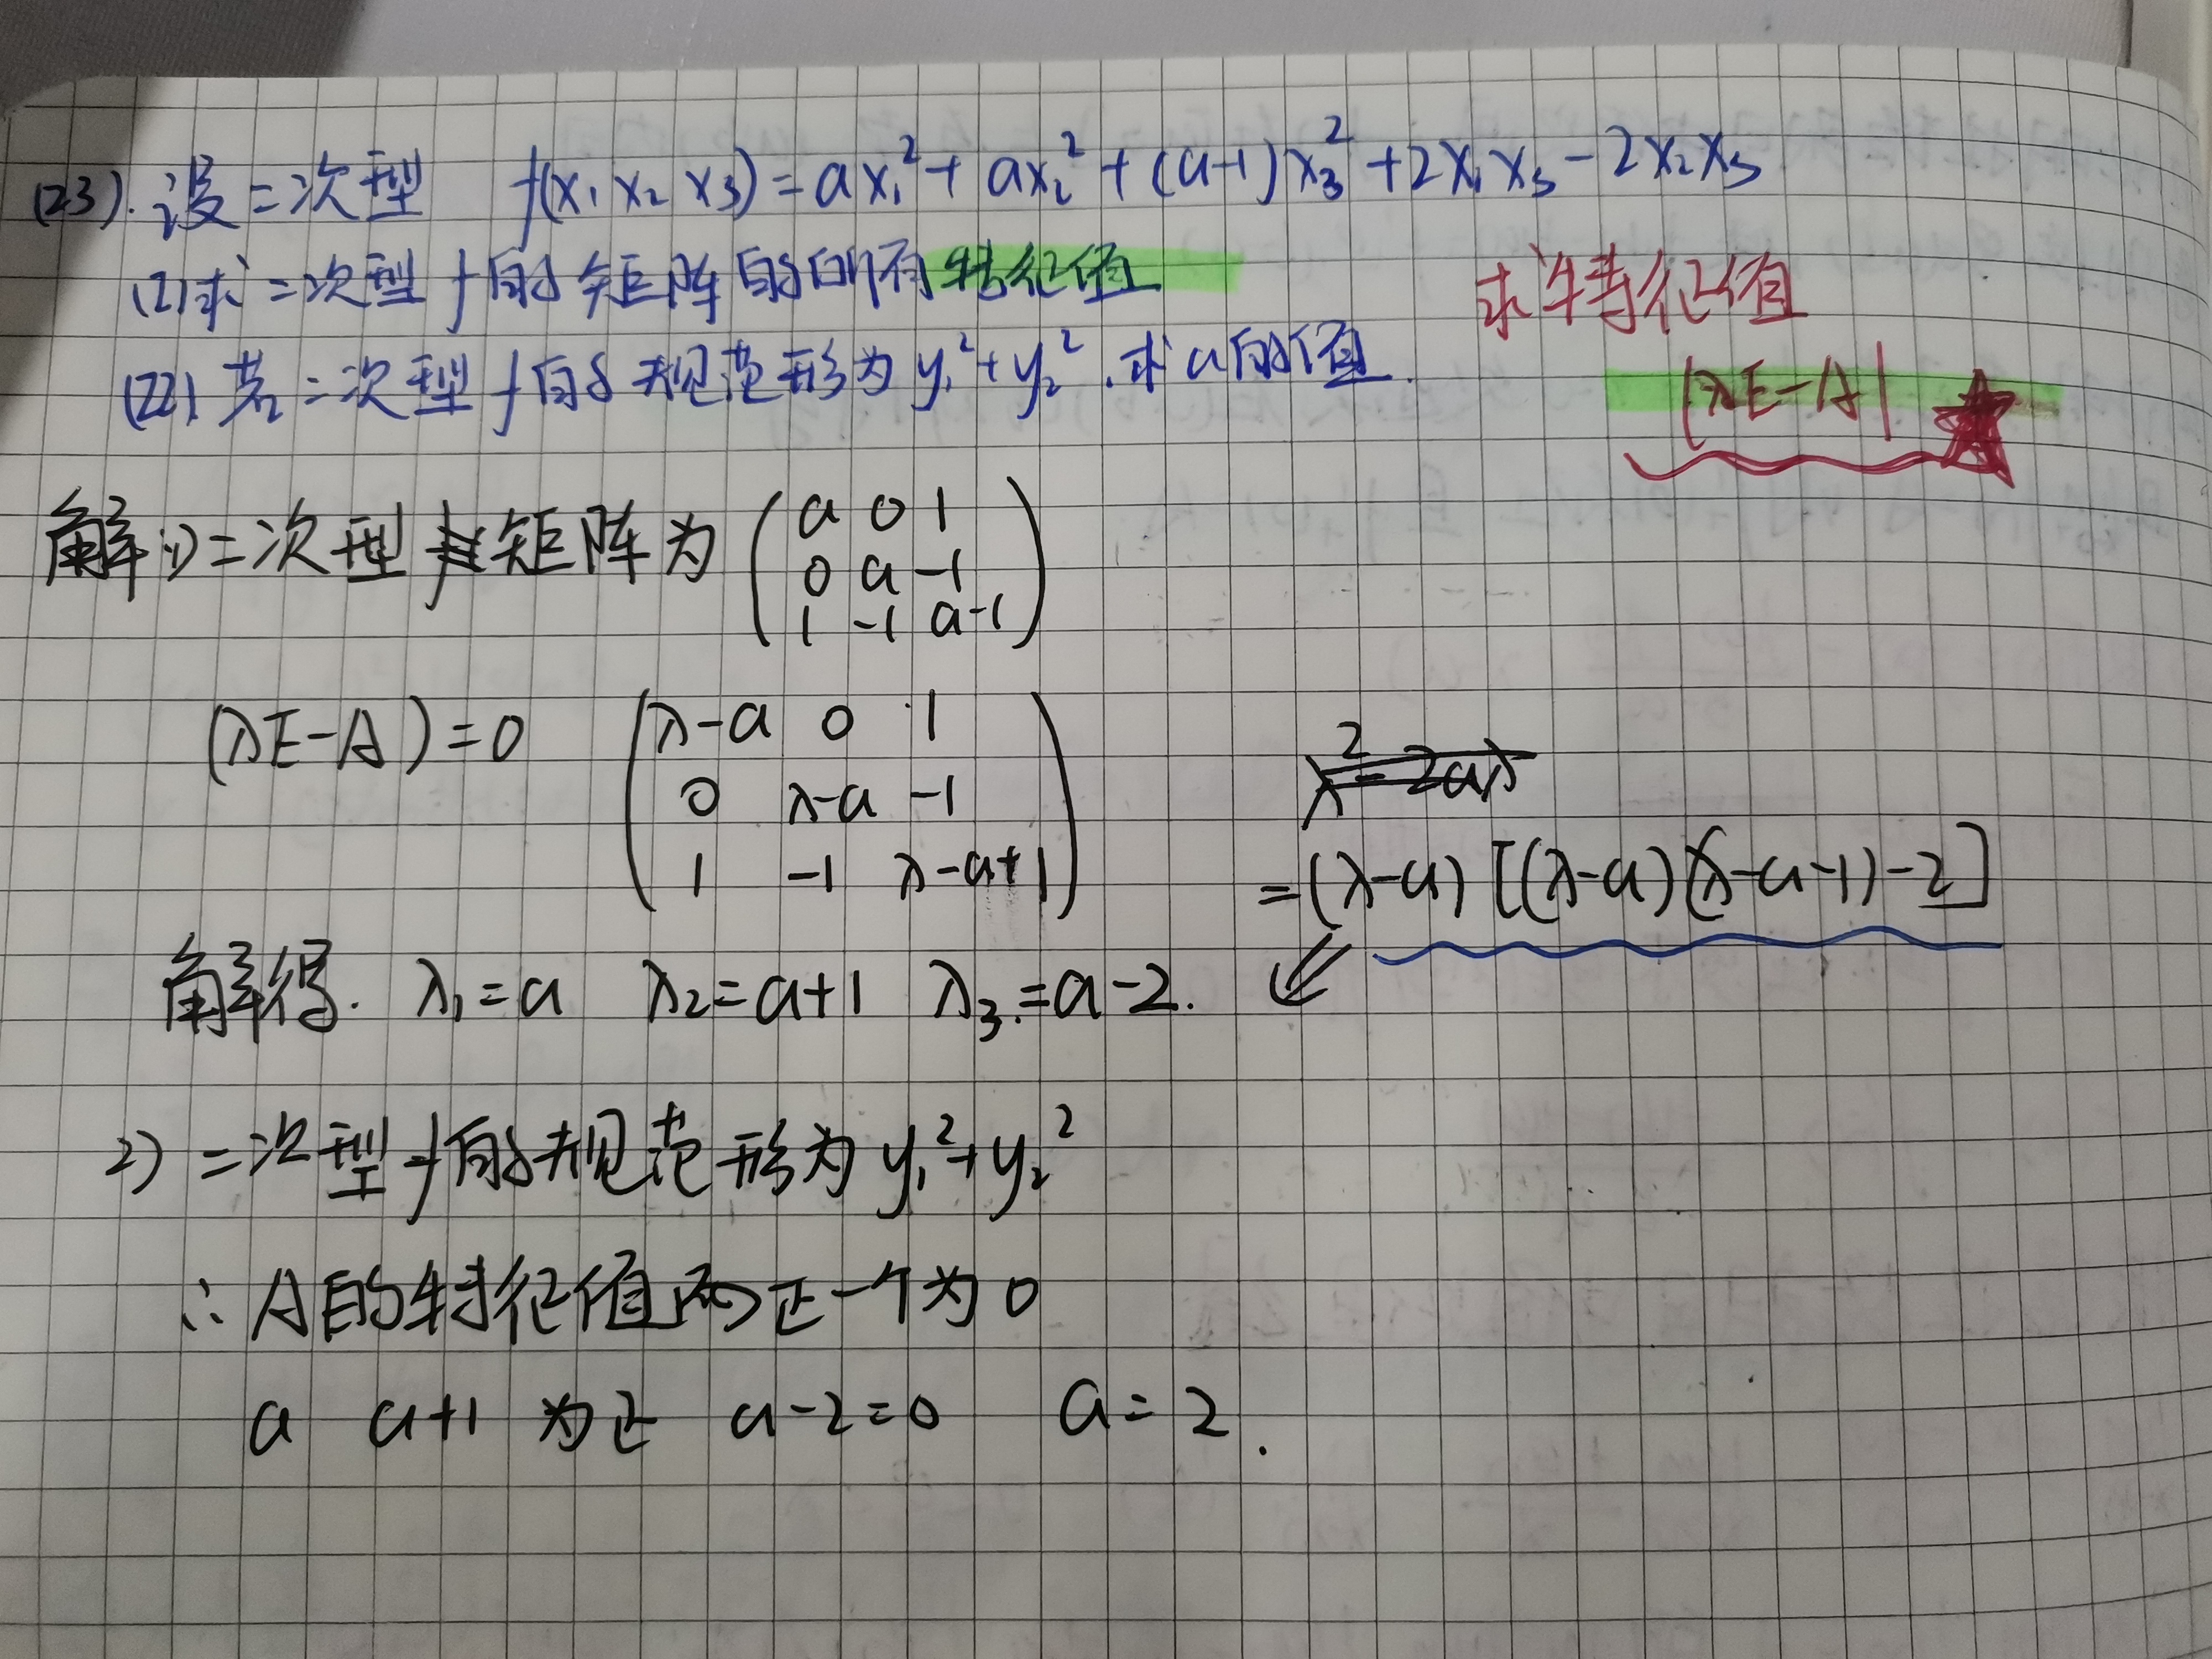 (23). 设二次型 f(x₁ x₂ x₃)=ax₁²+ax₂²+(a-1)x₃²+2x₁x₃-2x₂x₃
(Z)求二次型f的矩阵的所有特征值
(ZZ) 若二次型f的规范形为 y₁²+y₂².求a的值.
求特征值
|λE-A| ★
解 1)二次型 矩阵为 (a 0 1
0 a -1
1 -1 a-1)
(λE-A)=0 (λ-a 0 1
0 λ-a -1
1 -1 λ-a+1)
=(λ-a)[(λ-a)(λ-a-1)-2]
解得. λ₁=a λ₂=a+1 λ₃=a-2.
2) 二次型f的规范形为 y₁²+y₂²
∴ A的特征值两正一个为0
a a+1 为正 a-2=0 a=2.